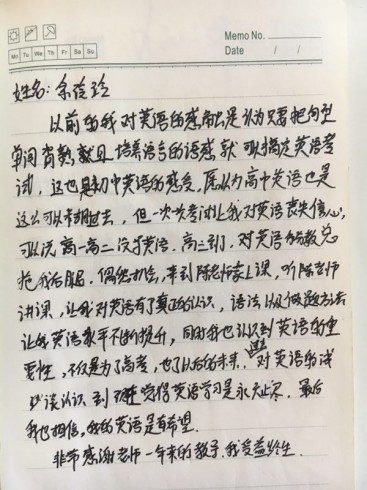 Memo No.
Mo Tu We Th Fr Sa Su
Date / /
姓名:余蓓玲
以前的我对英语的感触是认为只要把句型
单词背熟就且培养语言的语感就可以搞定英语考
试,这也是初中英语的感受,原以为高中英语也是
这么可以考过去,但一次次考试让我对英语丧失信心,
可以说高一高二没学英语.高三到了,对英语分数总
拖我后腿.偶然机会,来到陈老师家上课,听陈老师
讲课,让我对英语有了真正的认识,语法以及做题方法
让我英语水平不断提升,同时我也认识到英语的重
要性,不仅是为了高考,也了以后的未来.对英语的
谈认识到 觉得英语学习是永无止尽.最后
我也相信,我的英语是有希望.
非常感谢老师一年来的教导.我受益终生.